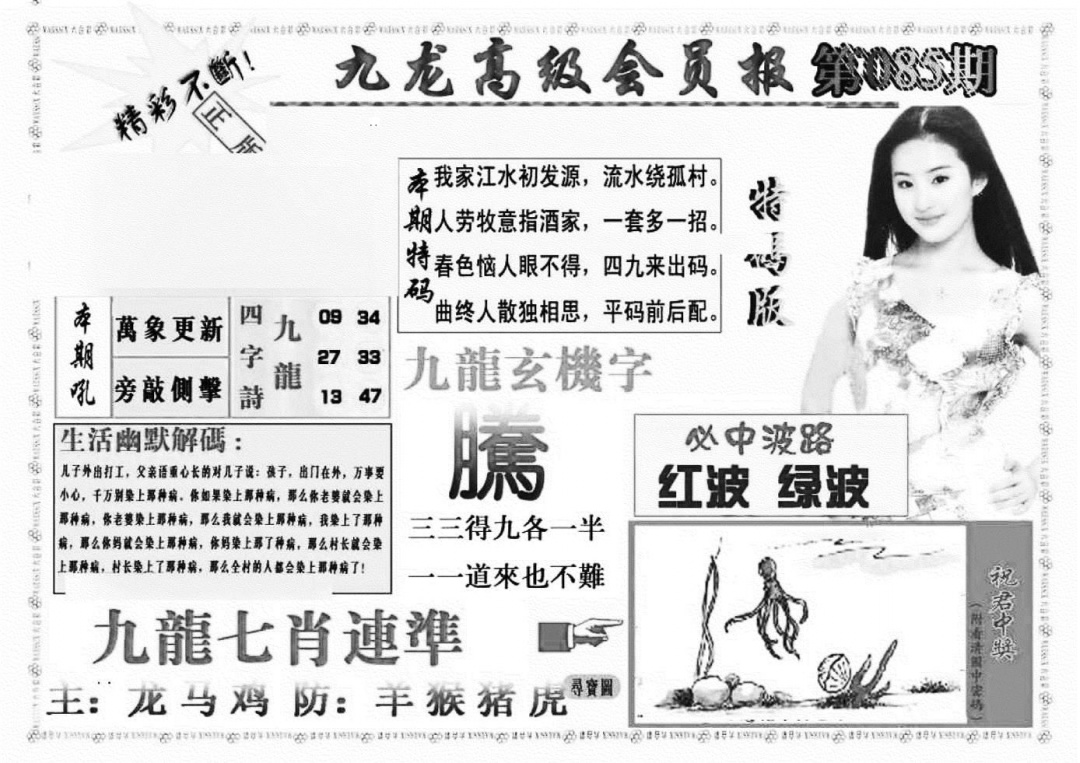 精彩不斷!
正版
九龙高级会员报
第085期
本期特码
我家江水初发源，流水绕孤村。
人劳牧意指酒家，一套多一招。
春色恼人眼不得，四九来出码。
曲终人散独相思，平码前后配。
特码版
本期吼
萬象更新
旁敲側擊
四字詩
九龍
09 34
27 33
13 47
九龍玄機字
騰
三三得九各一半
一一道來也不難
生活幽默解碼：
儿子外出打工，父亲语重心长的对儿子说：孩子，出门在外，万事要
小心，千万别染上那种病。你如果染上那种病，那么你老婆就会染上
那种病，你老婆染上那种病，那么我就会染上那种病，我染上了那种
病，那么你妈就会染上那种病，你妈染上那了种病，那么村长就会染
上那种病，村长染上了那种病，那么全村的人都会染上那种病了!
必中波路
红波 绿波
九龍七肖連準
主：龙马鸡 防：羊猴猪虎
尋寶圖
祝君中獎
（附看清圖中密碼）